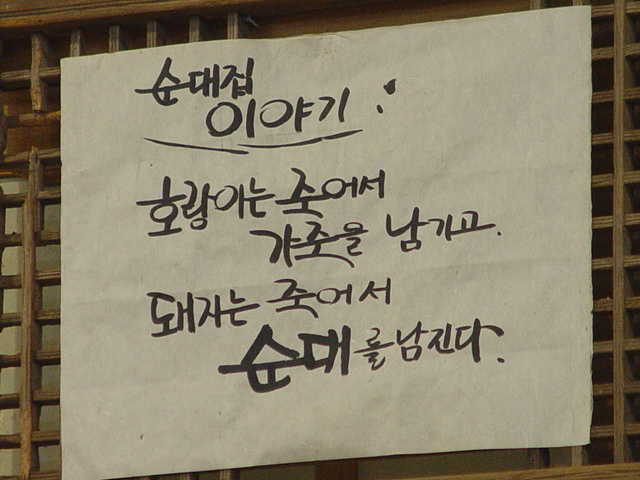 순대집
이야기 :
호랑이는 죽어서
가죽을 남기고.
돼지는 죽어서
순대를 남긴다.